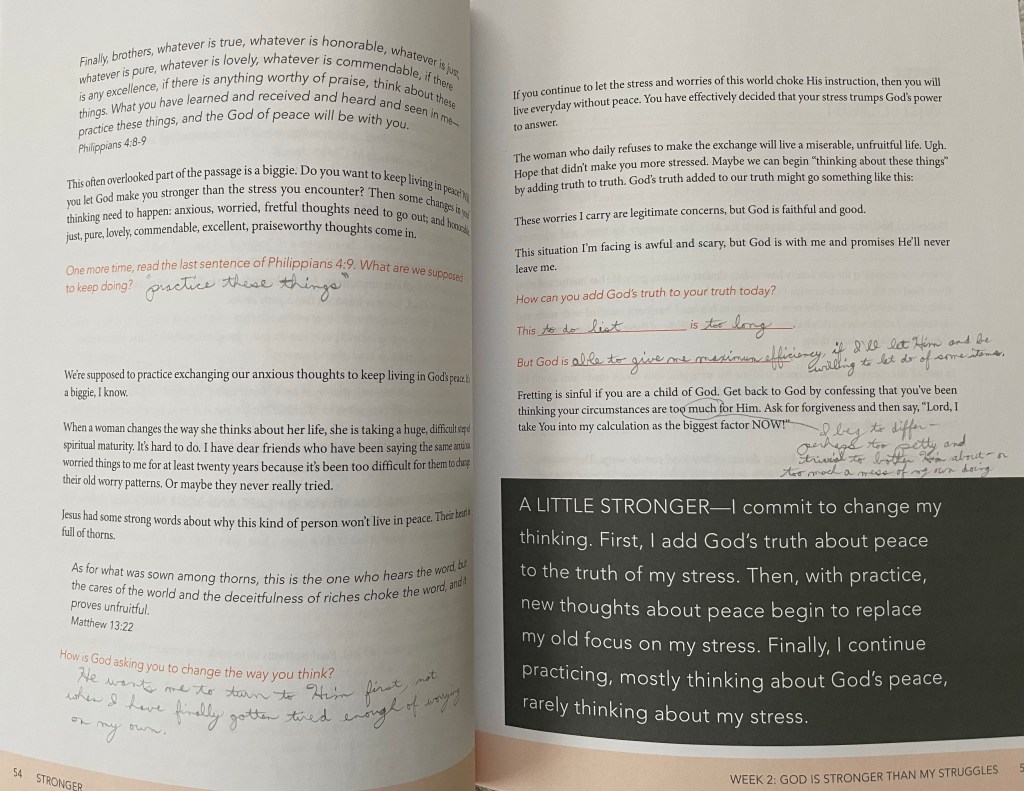 Finally, brothers, whatever is true, whatever is honorable, whatever is just,
whatever is pure, whatever is lovely, whatever is commendable, if there
is any excellence, if there is anything worthy of praise, think about these
things. What you have learned and received and heard and seen in me—
practice these things, and the God of peace will be with you.
Philippians 4:8-9
This often overlooked part of the passage is a biggie. Do you want to keep living in peace?
you let God make you stronger than the stress you encounter? Then some changes in
thinking need to happen: anxious, worried, fretful thoughts need to go out; and honorable,
just, pure, lovely, commendable, excellent, praiseworthy thoughts come in.
One more time, read the last sentence of Philippians 4:9. What are we supposed
to keep doing? "practice these things"
We're supposed to practice exchanging our anxious thoughts to keep living in God's peace.
a biggie, I know.
When a woman changes the way she thinks about her life, she is taking a huge, difficult step
spiritual maturity. It's hard to do. I have dear friends who have been saying the same anxious
worried things to me for at least twenty years because it's been too difficult for them to change
their old worry patterns. Or maybe they never really tried.
Jesus had some strong words about why this kind of person won't live in peace. Their heart
full of thorns.
As for what was sown among thorns, this is the one who hears the word, but
the cares of the world and the deceitfulness of riches choke the word, and it
proves unfruitful.
Matthew 13:22
How is God asking you to change the way you think?
He wants me to turn to Him first, not
when I have finally gotten tired enough of worrying
on my own.
54 STRONGER
If you continue to let the stress and worries of this world choke His instruction, then you will
live everyday without peace. You have effectively decided that your stress trumps God's power
to answer.
The woman who daily refuses to make the exchange will live a miserable, unfruitful life. Ugh.
Hope that didn't make you more stressed. Maybe we can begin "thinking about these things"
by adding truth to truth. God's truth added to our truth might go something like this:
These worries I carry are legitimate concerns, but God is faithful and good.
This situation I'm facing is awful and scary, but God is with me and promises He'll never
leave me.
How can you add God's truth to your truth today?
This to do list is too long.
But God is able to give me maximum efficiency, if I'll let Him and be
willing to let do of some items.
Fretting is sinful if you are a child of God. Get back to God by confessing that you've been
thinking your circumstances are too much for Him. Ask for forgiveness and then say, "Lord, I
take You into my calculation as the biggest factor NOW!"
I beg to differ-
perhaps too petty and
trivial to bother Him about - or
too much a mess of my own doing
A LITTLE STRONGER—I commit to change my
thinking. First, I add God's truth about peace
to the truth of my stress. Then, with practice,
new thoughts about peace begin to replace
my old focus on my stress. Finally, I continue
practicing, mostly thinking about God's peace,
rarely thinking about my stress.
WEEK 2: GOD IS STRONGER THAN MY STRUGGLES